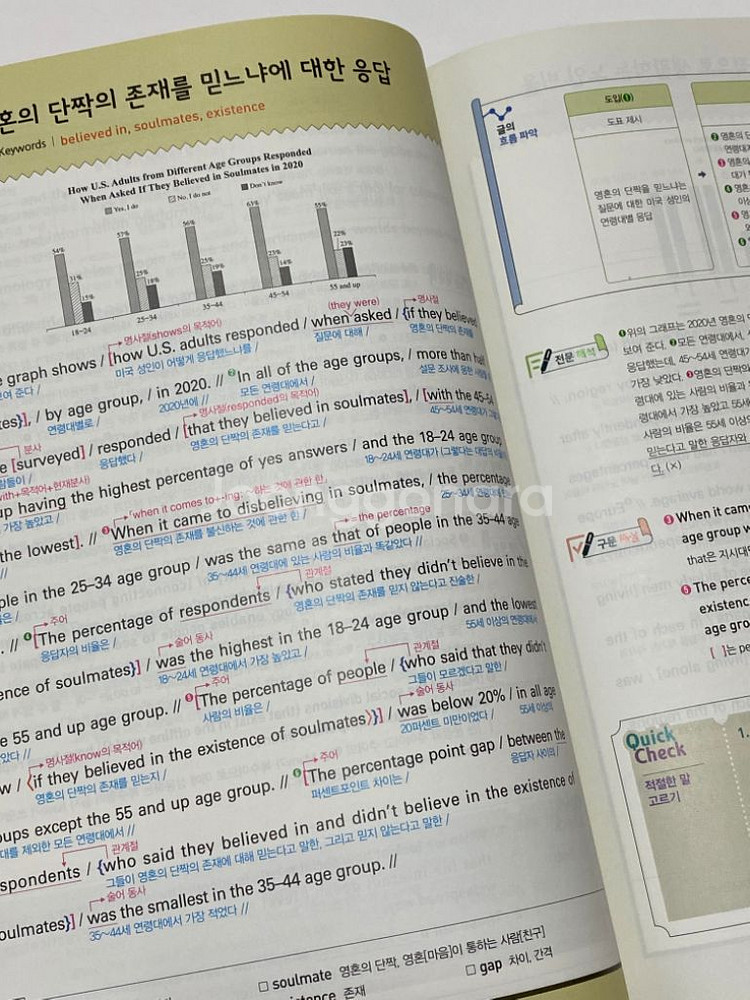 혼의 단짝의 존재를 믿느냐에 대한 응답
Keywords | believed in, soulmates, existence
How U.S. Adults from Different Age Groups Responded
When Asked If They Believed in Soulmates in 2020
Yes, I do No, I do not Don't know
54% 31% 15%
57% 25% 18%
56% 25% 19%
63% 23% 14%
55% 22% 23%
18-24 25-34 35-44 45-54 55 and up
(they were)
명사절(shows의 목적어) 명사절
e graph shows / [how U.S. adults responded / when asked / {if they believed
보여 준다 / 미국 성인이 어떻게 응답했느냐를 / 질문에 대해 / 영혼의 단짝의 존재를
tes}], / by age group, / in 2020. // ❷In all of the age groups, / more than half
연령대별로 / 2020년에 // 모든 연령대에서 /
분사 명사절(responded의 목적어)
e [surveyed] / responded / [that they believed in soulmates], / [with the 45-54
람들이 / 응답했다 / 영혼의 단짝의 존재를 믿는다고 / 45~54세 연령대가
with+목적어+현재분사)
up having the highest percentage of yes answers / and the 18–24 age group
가장 높았고 / 18~24세 연령대가
「when it comes to+-ing: ~하는 것에 관한 한」 =the percentage
the lowest]. // ❸When it came to disbelieving in soulmates, / the percentage
영혼의 단짝의 존재를 불신하는 것에 관한 한 /
ple in the 25–34 age group / was the same as that of people in the 35–44 age
35~44세 연령대에 있는 사람의 비율과 똑같았다 //
주어 관계절
. // ❹[The percentage of respondents / {who stated they didn't believe in the
응답자의 비율은 / 영혼의 단짝의 존재를 믿지 않는다고 진술한 /
술어 동사
ence of soulmates}] / was the highest in the 18–24 age group / and the lowest
18~24세 연령대에서 가장 높았고 / 55세 이상의 연령대에서
주어 관계절
e 55 and up age group. // ❺[The percentage of people / {who said that they didn't
았다 // 사람의 비율은 / 그들이 모르겠다고 말한 /
명사절(know의 목적어) 술어 동사
w / 〈if they believed in the existence of soulmates〉}] / was below 20% / in all age
영혼의 단짝의 존재를 믿는지 / 20퍼센트 미만이었다 / 55세 이상의
주어
oups except the 55 and up age group. // ❻[The percentage point gap / between the
대를 제외한 모든 연령대에서 // 퍼센트포인트 차이는 / 응답자 사이의 /
관계절
spondents / {who said they believed in and didn't believe in the existence of
그들이 영혼의 단짝의 존재에 대해 믿는다고 말한, 그리고 믿지 않는다고 말한 /
술어 동사
oulmates}] / was the smallest in the 35–44 age group. //
35~44세 연령대에서 가장 적었다 //
□ soulmate 영혼의 단짝, 영혼[마음]이 통하는 사람[친구]
istence 존재 □ gap 차이, 간격
글의
흐름 파악
도입(❶)
도표 제시
영혼의 단짝을 믿느냐는
질문에 대한 미국 성인의
연령대별 응답
전문 해석
❶위의 그래프는 2020년 영혼의
보여 준다. ❷모든 연령대에서,
응답했는데, 45~54세 연령대가
가장 낮았다. ❸영혼의 단짝의
령대에 있는 사람의 비율과
령대에서 가장 높았고 55세
사람의 비율은 55세 이상의
믿는다고 말한 응답자와
다. (×)
구문 해설
❸ When it came
age group w
that은 지시대
❺ The perce
existenc
age gro
[ ]는 pe
Quick
Check
적절한 말
고르기
1.